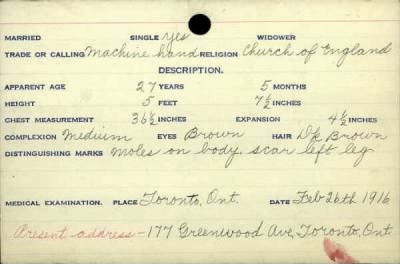 MARRIED SINGLE Yes WIDOWER
TRADE OR CALLING Machine hand RELIGION Church of England
DESCRIPTION.
APPARENT AGE 27 YEARS 5 MONTHS
HEIGHT 5 FEET 7½ INCHES
CHEST MEASUREMENT 36½ INCHES EXPANSION 4½ INCHES
COMPLEXION Medium EYES Brown HAIR Dk Brown
DISTINGUISHING MARKS Moles on body, scar left leg
MEDICAL EXAMINATION. PLACE Toronto, Ont. DATE Feb 26th 1916
Present address - 177 Greenwood Ave, Toronto, Ont